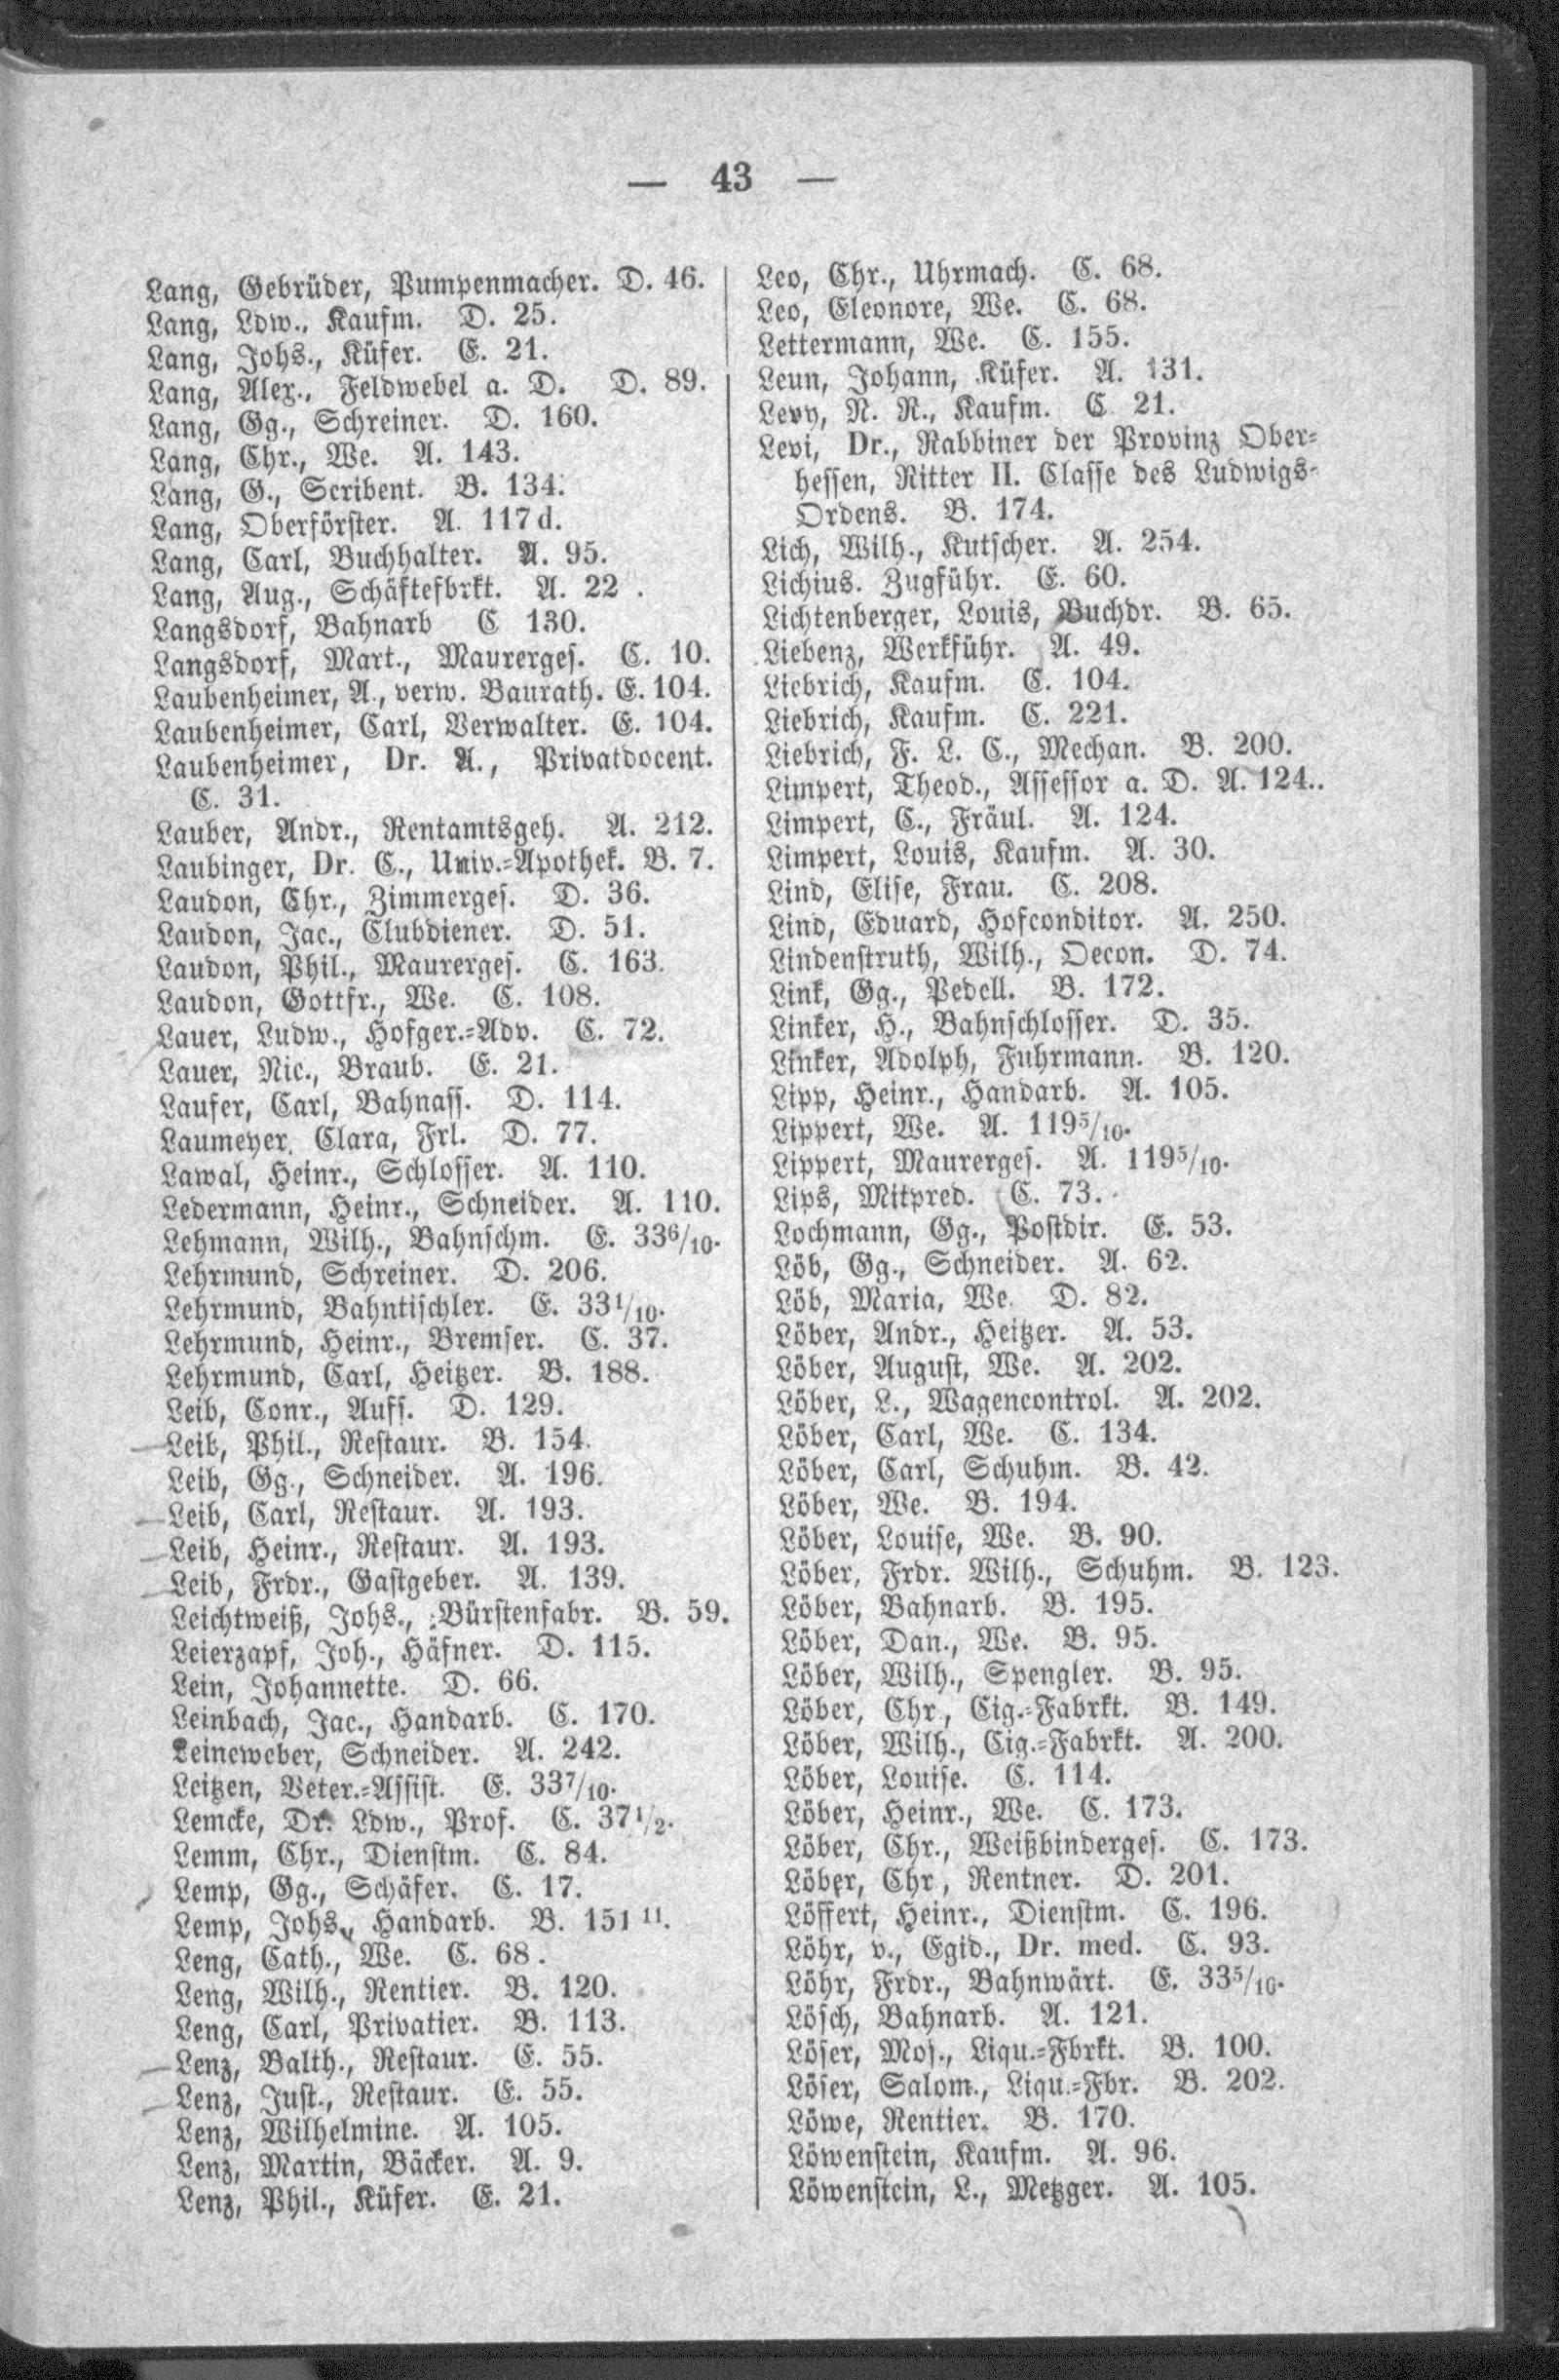 — 43 —
Lang, Gebrüder, Pumpenmacher. D. 46.
Lang, Ldw., Kaufm. D. 25.
Lang, Johs., Küfer. E. 21.
Lang, Alex., Feldwebel a. D. D. 89.
Lang, Gg., Schreiner. D. 160.
Lang, Chr., We. A. 143.
Lang, G., Scribent. B. 134.
Lang, Oberförster. A. 117 d.
Lang, Carl, Buchhalter. A. 95.
Lang, Aug., Schäftefbrkt. A. 22 .
Langsdorf, Bahnarb C 130.
Langsdorf, Mart., Maurerges. C. 10.
Laubenheimer, A., verw. Baurath. E. 104.
Laubenheimer, Carl, Verwalter. E. 104.
Laubenheimer, Dr. A., Privatdocent.
C. 31.
Lauber, Andr., Rentamtsgeh. A. 212.
Laubinger, Dr. C., Univ.-Apothek. B. 7.
Laudon, Chr., Zimmerges. D. 36.
Laudon, Jac., Clubdiener. D. 51.
Laudon, Phil., Maurerges. C. 163.
Laudon, Gottfr., We. C. 108.
Lauer, Ludw., Hofger.-Adv. C. 72.
Lauer, Nic., Braub. E. 21.
Laufer, Carl, Bahnass. D. 114.
Laumeyer, Clara, Frl. D. 77.
Lawal, Heinr., Schlosser. A. 110.
Ledermann, Heinr., Schneider. A. 110.
Lehmann, Wilh., Bahnschm. E. 33 6/10.
Lehrmund, Schreiner. D. 206.
Lehrmund, Bahntischler. E. 33 1/10.
Lehrmund, Heinr., Bremser. C. 37.
Lehrmund, Carl, Heitzer. B. 188.
Leib, Conr., Aufs. D. 129.
Leib, Phil., Restaur. B. 154.
Leib, Gg., Schneider. A. 196.
Leib, Carl, Restaur. A. 193.
Leib, Heinr., Restaur. A. 193.
Leib, Frdr., Gastgeber. A. 139.
Leichtweiß, Johs., Bürstenfabr. B. 59.
Leierzapf, Joh., Häfner. D. 115.
Lein, Johannette. D. 66.
Leinbach, Jac., Handarb. C. 170.
Leineweber, Schneider. A. 242.
Leitzen, Veter.-Assist. E. 33 7/10.
Lemcke, Dr. Ldw., Prof. C. 37 1/2.
Lemm, Chr., Dienstm. C. 84.
Lemp, Gg., Schäfer. C. 17.
Lemp, Johs., Handarb. B. 151 11.
Leng, Cath., We. C. 68.
Leng, Wilh., Rentier. B. 120.
Leng, Carl, Privatier. B. 113.
Lenz, Balth., Restaur. E. 55.
Lenz, Just., Restaur. E. 55.
Lenz, Wilhelmine. A. 105.
Lenz, Martin, Bäcker. A. 9.
Lenz, Phil., Küfer. E. 21.
Leo, Chr., Uhrmach. C. 68.
Leo, Eleonore, We. C. 68.
Lettermann, We. C. 155.
Leun, Johann, Küfer. A. 131.
Levy, N. R., Kaufm. C 21.
Levi, Dr., Rabbiner der Provinz Ober-
hessen, Ritter II. Classe des Ludwigs-
Ordens. B. 174.
Lich, Wilh., Kutscher. A. 254.
Lichius. Zugführ. E. 60.
Lichtenberger, Louis, Buchdr. B. 65.
Liebenz, Werkführ. A. 49.
Liebrich, Kaufm. C. 104.
Liebrich, Kaufm. C. 221.
Liebrich, F. L. C., Mechan. B. 200.
Limpert, Theod., Assessor a. D. A. 124..
Limpert, C., Fräul. A. 124.
Limpert, Louis, Kaufm. A. 30.
Lind, Elise, Frau. C. 208.
Lind, Eduard, Hofconditor. A. 250.
Lindenstruth, Wilh., Oecon. D. 74.
Link, Gg., Pedell. B. 172.
Linker, H., Bahnschlosser. D. 35.
Linker, Adolph, Fuhrmann. B. 120.
Lipp, Heinr., Handarb. A. 105.
Lippert, We. A. 119 5/10.
Lippert, Maurerges. A. 119 5/10.
Lips, Mitpred. C. 73.
Lochmann, Gg., Postdir. E. 53.
Löb, Gg., Schneider. A. 62.
Löb, Maria, We. D. 82.
Löber, Andr., Heitzer. A. 53.
Löber, August, We. A. 202.
Löber, L., Wagencontrol. A. 202.
Löber, Carl, We. C. 134.
Löber, Carl, Schuhm. B. 42.
Löber, We. B. 194.
Löber, Louise, We. B. 90.
Löber, Frdr. Wilh., Schuhm. B. 123.
Löber, Bahnarb. B. 195.
Löber, Dan., We. B. 95.
Löber, Wilh., Spengler. B. 95.
Löber, Chr., Cig.-Fabrkt. B. 149.
Löber, Wilh., Cig.-Fabrkt. A. 200.
Löber, Louise. C. 114.
Löber, Heinr., We. C. 173.
Löber, Chr., Weißbinderges. C. 173.
Löber, Chr., Rentner. D. 201.
Löffert, Heinr., Dienstm. C. 196.
Löhr, v., Egid., Dr. med. C. 93.
Löhr, Frdr., Bahnwärt. E. 33 5/10.
Lösch, Bahnarb. A. 121.
Löser, Mos., Liqu.-Fbrkt. B. 100.
Löser, Salom., Liqu.-Fbr. B. 202.
Löwe, Rentier. B. 170.
Löwenstein, Kaufm. A. 96.
Löwenstein, L., Metzger. A. 105.